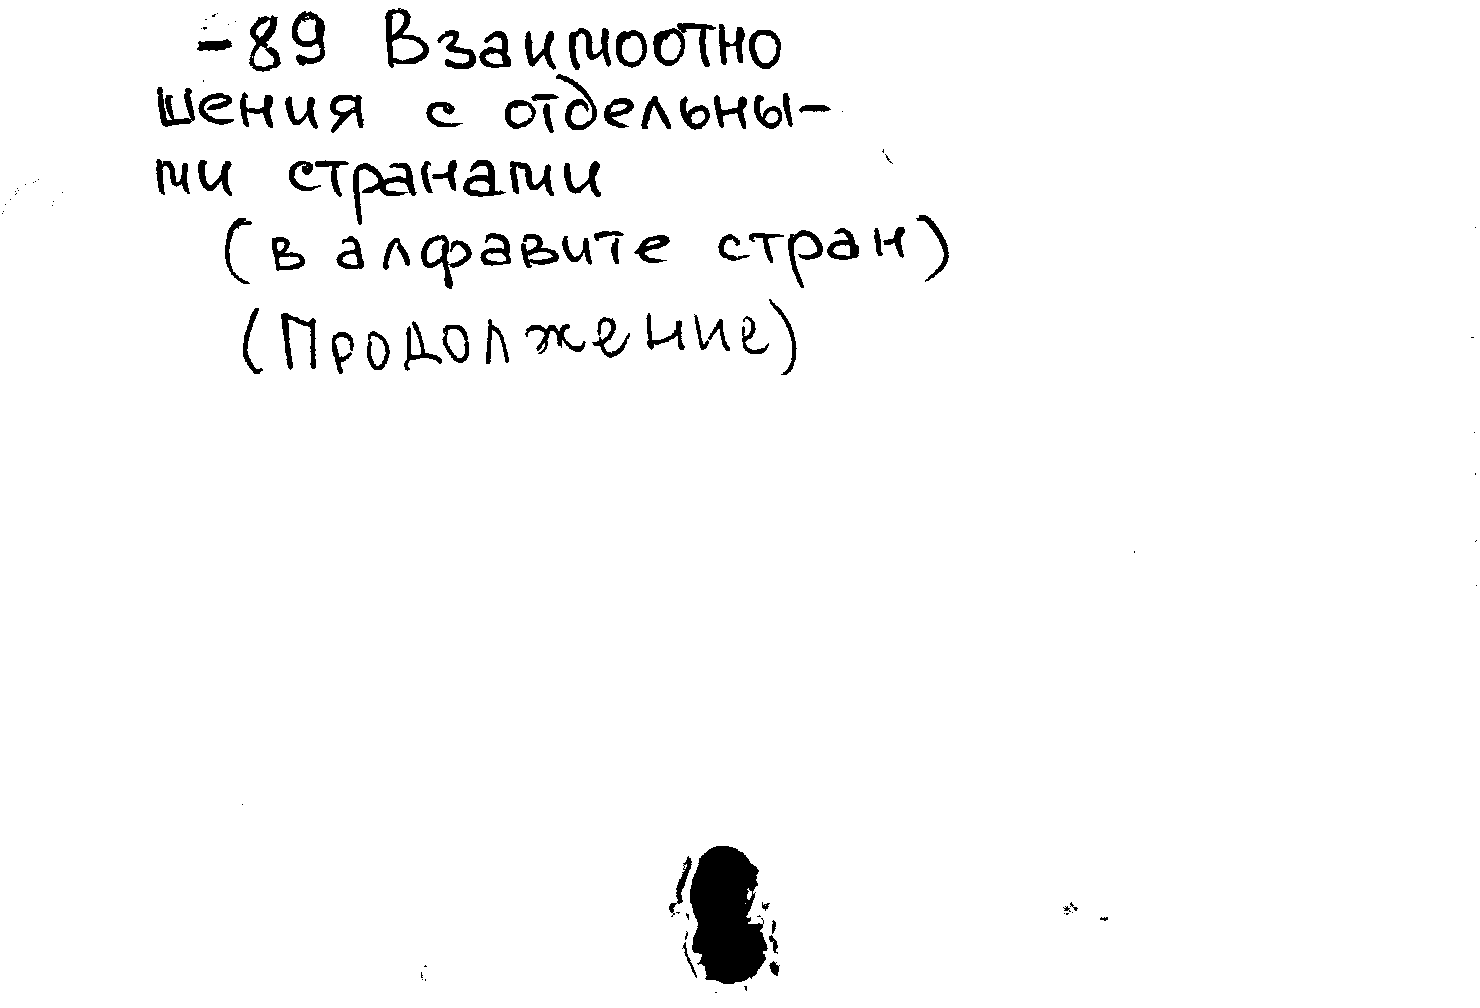 -89 Взаимоотно
шения с отдельны-
ми странами
(в алфавите стран)
(Продолжение)